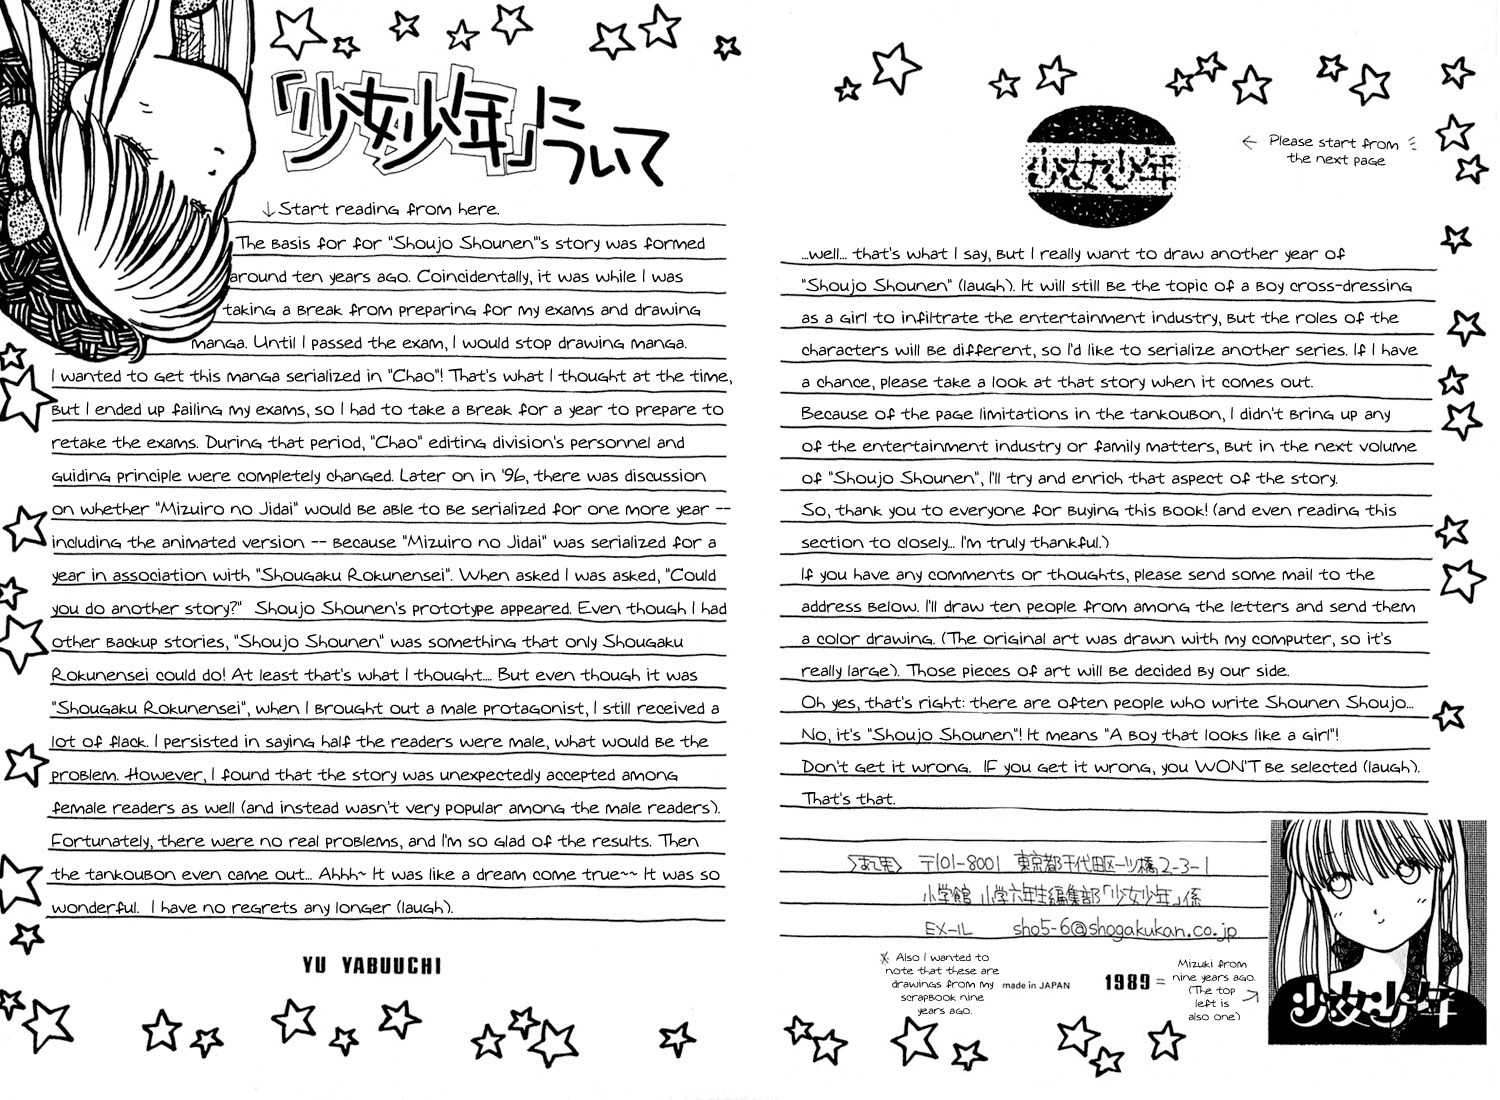 「少女少年」に
ついて
↓Start reading from here.
The basis for for "Shoujo Shounen"'s story was formed
around ten years ago. Coincidentally, it was while I was
taking a break from preparing for my exams and drawing
manga. Until I passed the exam, I would stop drawing manga.
I wanted to get this manga serialized in "Chao"! That's what I thought at the time,
but I ended up failing my exams, so I had to take a break for a year to prepare to
retake the exams. During that period, "Chao" editing division's personnel and
guiding principle were completely changed. Later on in '96, there was discussion
on whether "Mizuiro no Jidai" would be able to be serialized for one more year --
including the animated version -- because "Mizuiro no Jidai" was serialized for a
year in association with "Shougaku Rokunensei". When asked I was asked, "Could
you do another story?" Shoujo Shounen's prototype appeared. Even though I had
other backup stories, "Shoujo Shounen" was something that only Shougaku
Rokunensei could do! At least that's what I thought.... But even though it was
"Shougaku Rokunensei", when I brought out a male protagonist, I still received a
lot of flack. I persisted in saying half the readers were male, what would be the
problem. However, I found that the story was unexpectedly accepted among
female readers as well (and instead wasn't very popular among the male readers).
Fortunately, there were no real problems, and I'm so glad of the results. Then
the tankoubon even came out... Ahhh~ It was like a dream come true~~ It was so
wonderful. I have no regrets any longer (laugh).
YU YABUUCHI
少女少年
← Please start from
the next page
...well... that's what I say, but I really want to draw another year of
"Shoujo Shounen" (laugh). It will still be the topic of a boy cross-dressing
as a girl to infiltrate the entertainment industry, but the roles of the
characters will be different, so I'd like to serialize another series. If I have
a chance, please take a look at that story when it comes out.
Because of the page limitations in the tankoubon, I didn't bring up any
of the entertainment industry or family matters, but in the next volume
of "Shoujo Shounen", I'll try and enrich that aspect of the story.
So, thank you to everyone for buying this book! (and even reading this
section to closely... I'm truly thankful.)
If you have any comments or thoughts, please send some mail to the
address below. I'll draw ten people from among the letters and send them
a color drawing. (The original art was drawn with my computer, so it's
really large). Those pieces of art will be decided by our side.
Oh yes, that's right: there are often people who write Shounen Shoujo...
No, it's "Shoujo Shounen"! It means "A boy that looks like a girl"!
Don't get it wrong. IF you get it wrong, you WON'T be selected (laugh).
That's that.
〈あて先〉 〒101-8001 東京都千代田区一ツ橋2-3-1
小学館 小学六年生編集部「少女少年」係
EX-IL sho5-6@shogakukan.co.jp
※ Also I wanted to
note that these are
drawings from my
scrapbook nine
years ago.
made in JAPAN
1989 =
Mizuki from
nine years ago.
(The top
left is
also one)
→
少女少年